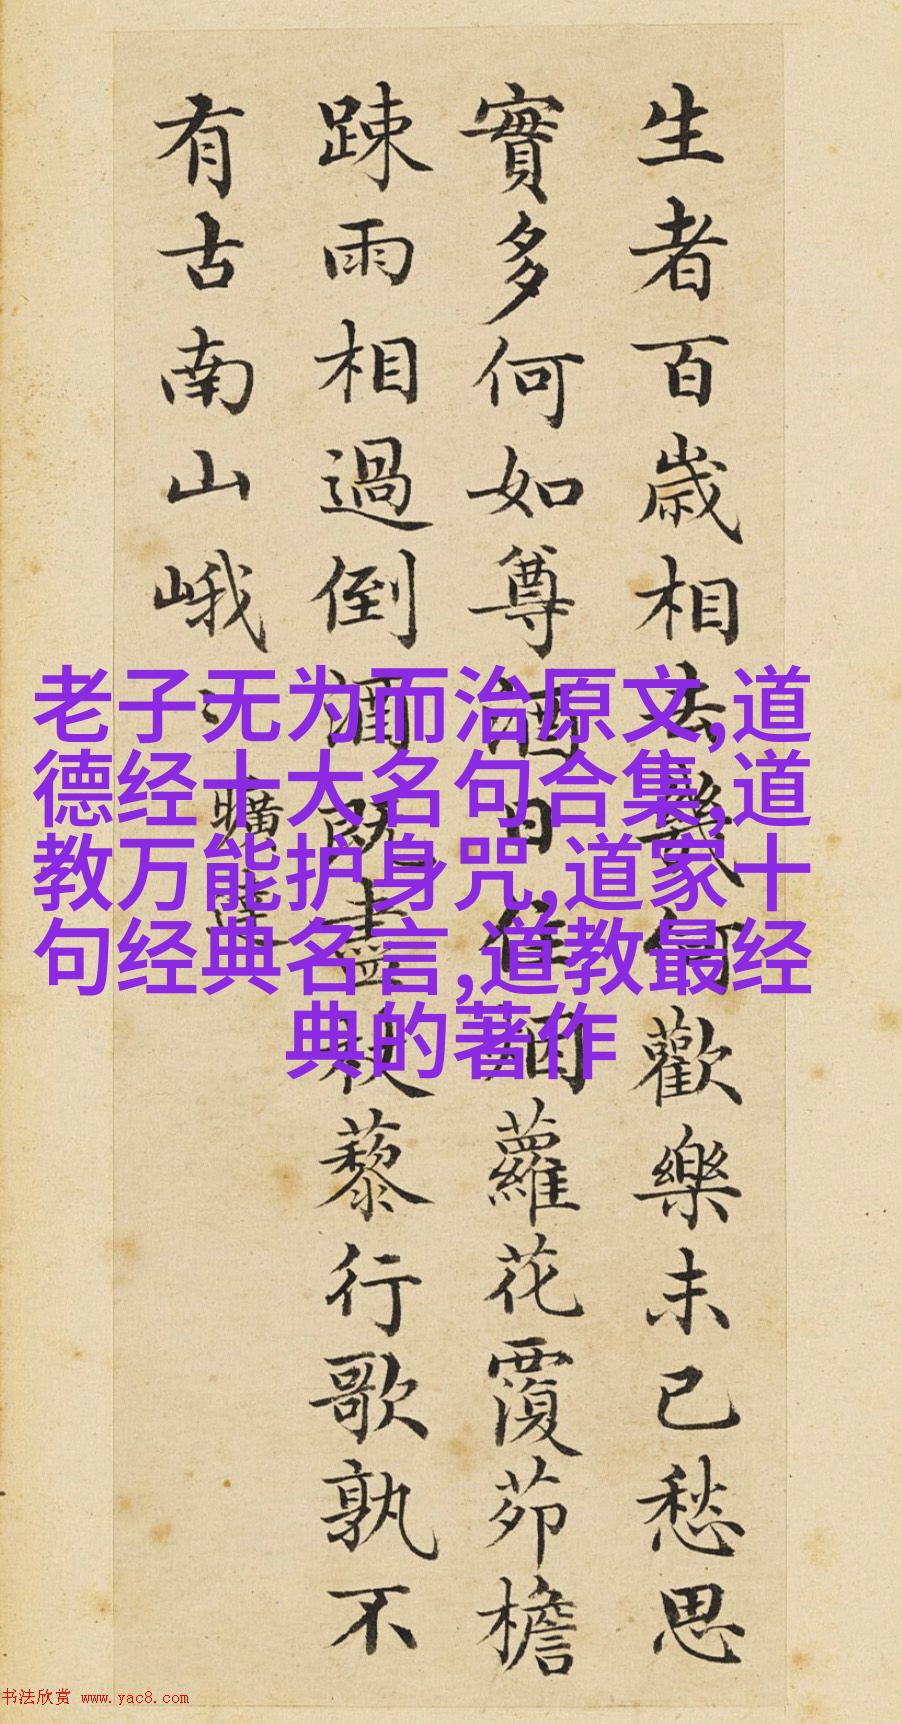 生者百歲相去幾何歡樂未已愁思
實多何如尊酒日往烟蘿花覆茆檐
踈雨相過倒酒既盡杖藜行歌孰不
有古南山峨〻
曠達
老子无为而治原文,道
德经十大名句合集,道
教万能护身咒,道家十
句经典名言,道教最经
典的著作
书法欣赏 www.yac8.com